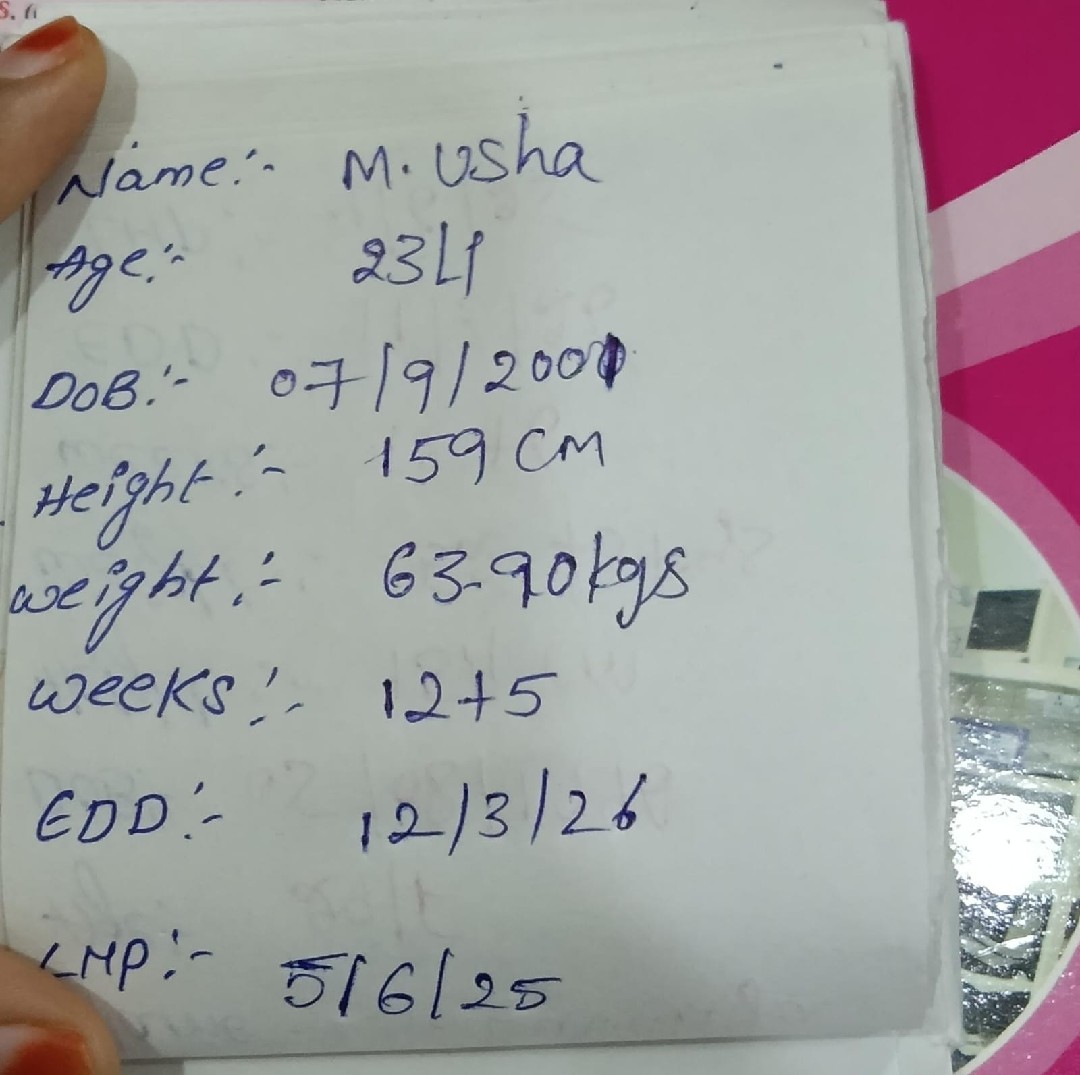 Name:- M. Usha
Age:- 23Y
DOB:- 07/9/2001
Height:- 159 CM
weight:- 63.90kgs
weeks:- 12+5
EDD:- 12/3/26
LMP:- 5/6/25